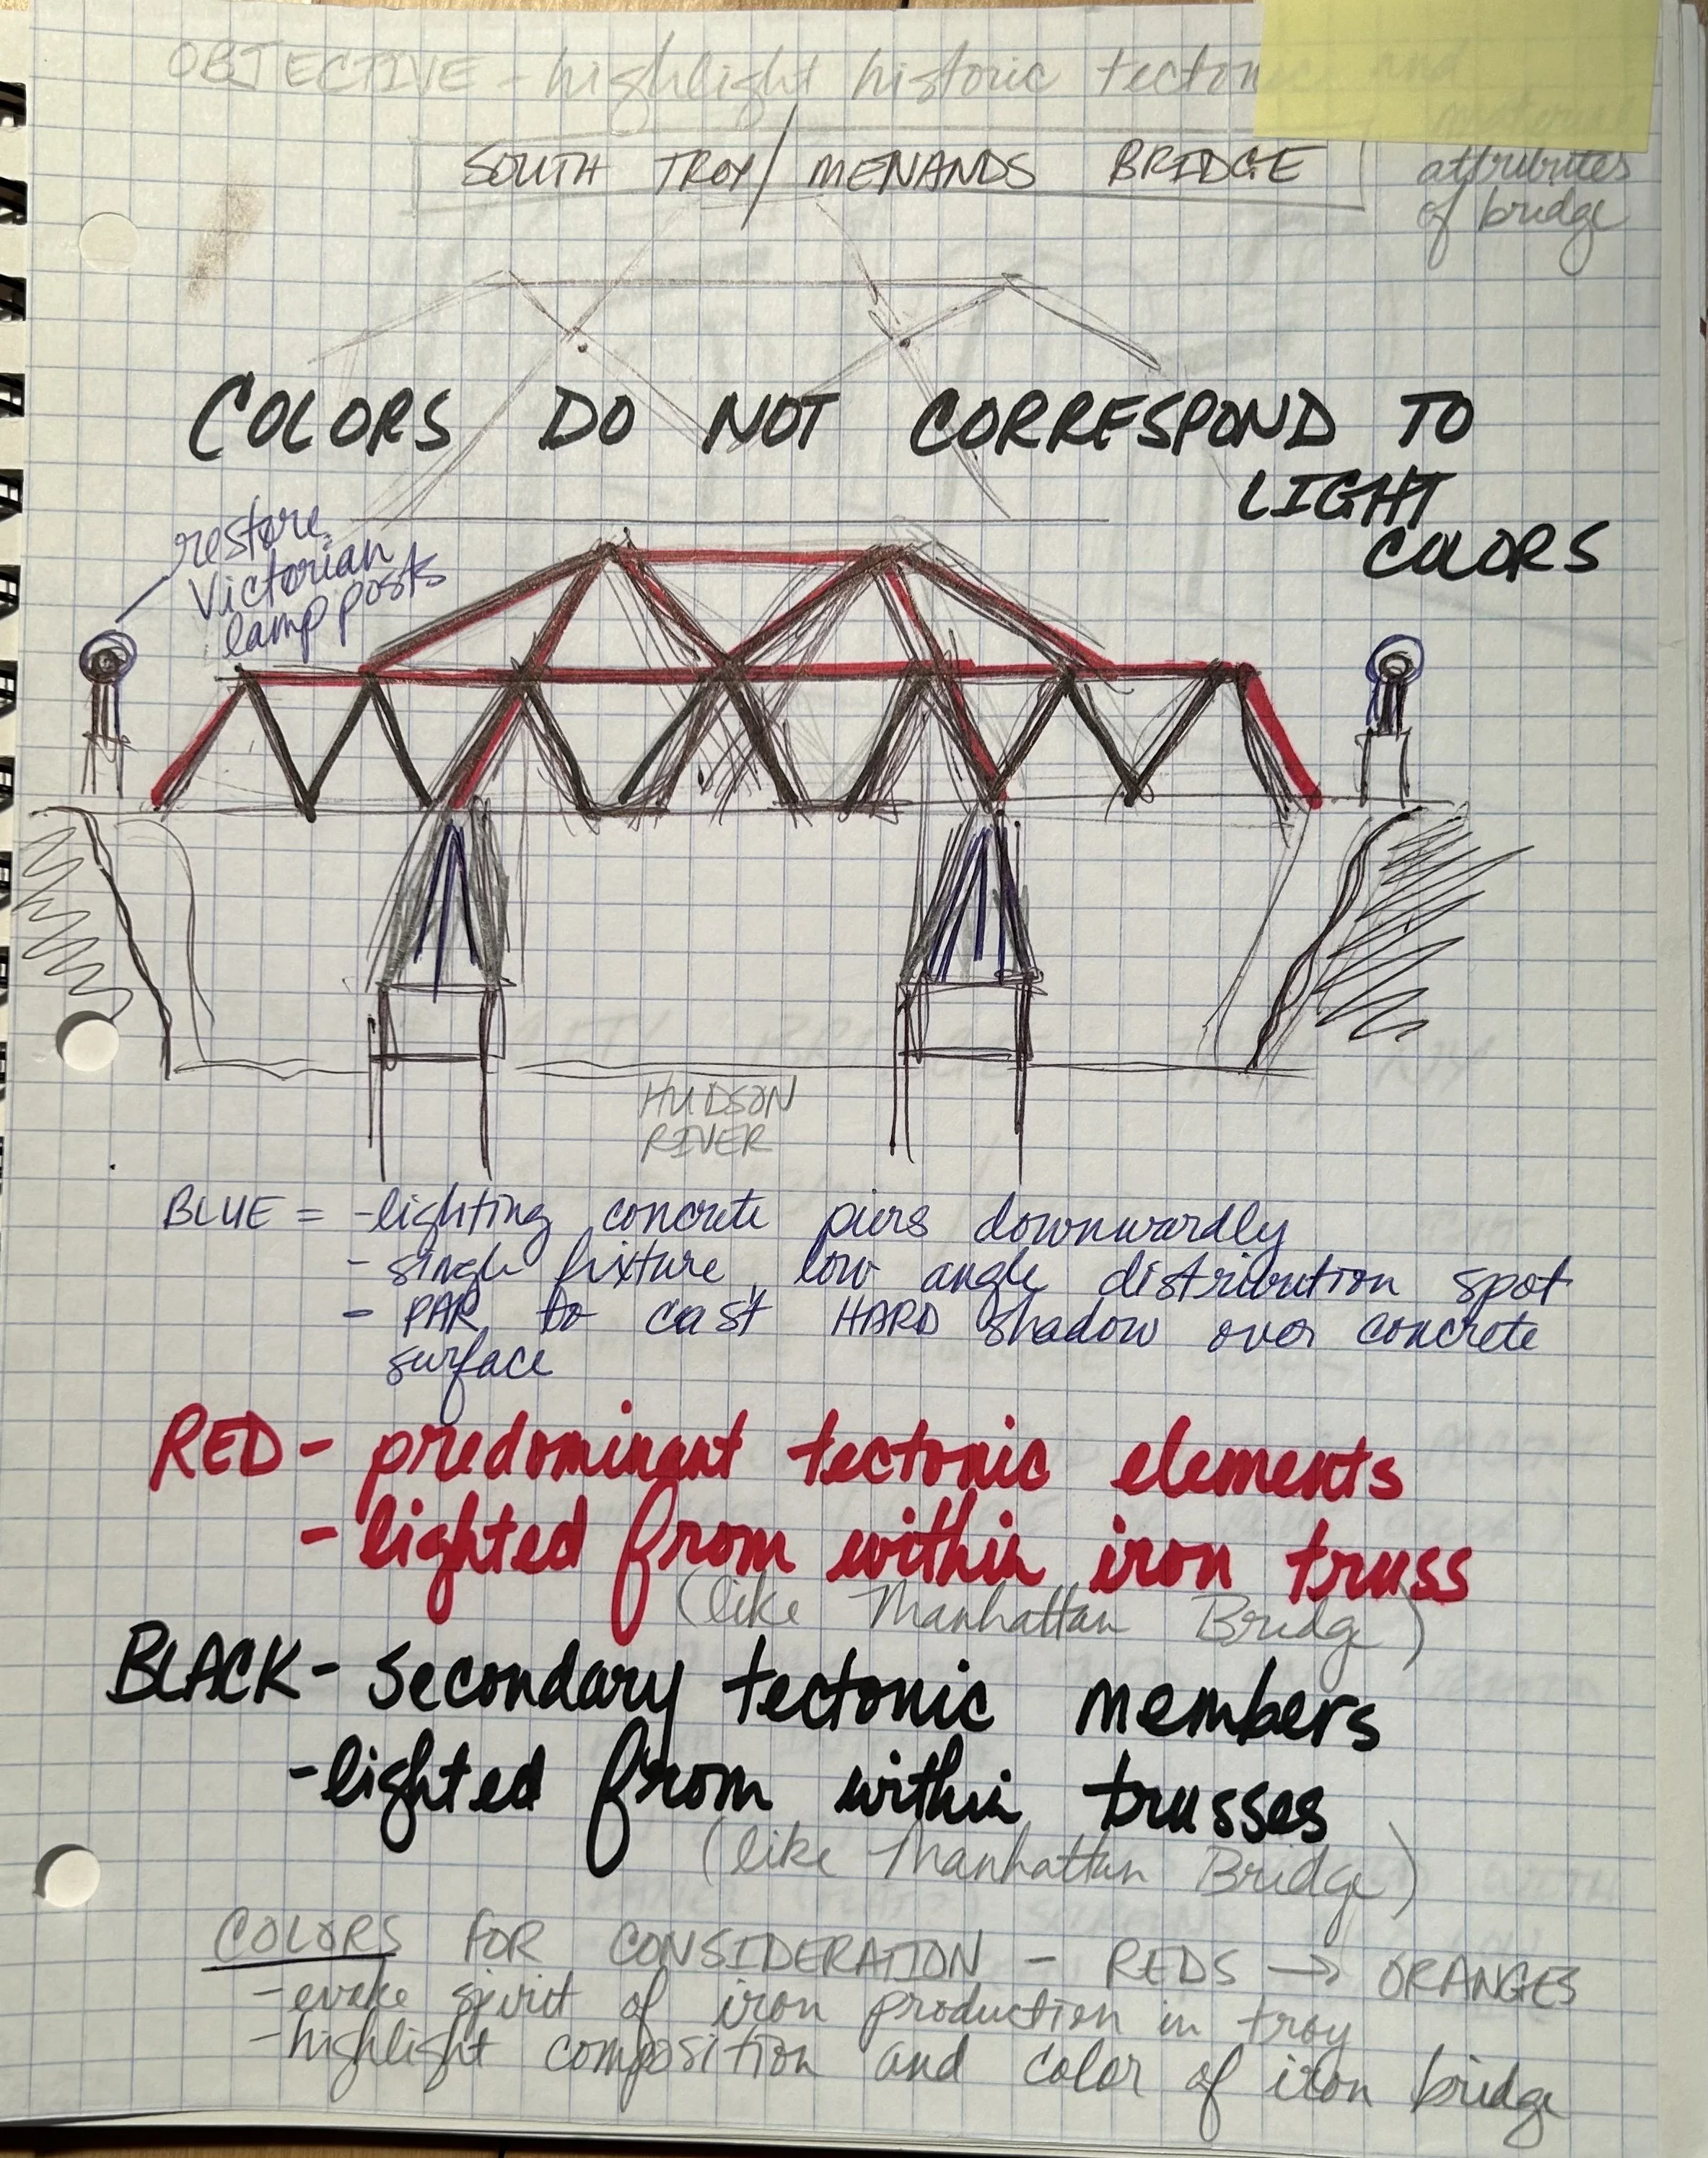 OBJECTIVE - highlight historic tectonic and
material
attributes
of bridge
SOUTH TROY/MENANDS BRIDGE
COLORS DO NOT CORRESPOND TO
LIGHT
COLORS
restore
Victorian
lamp posts
HUDSON
RIVER
BLUE = -lighting concrete piers downwardly
- single fixture, low angle distribution spot
- PAR to cast HARD shadow over concrete
surface
RED - predominant tectonic elements
- lighted from within iron truss
(like Manhattan Bridge)
BLACK - secondary tectonic members
-lighted from within trusses
(like Manhattan Bridge)
COLORS FOR CONSIDERATION - REDS → ORANGES
-evoke spirit of iron production in troy
-highlight composition and color of iron bridge